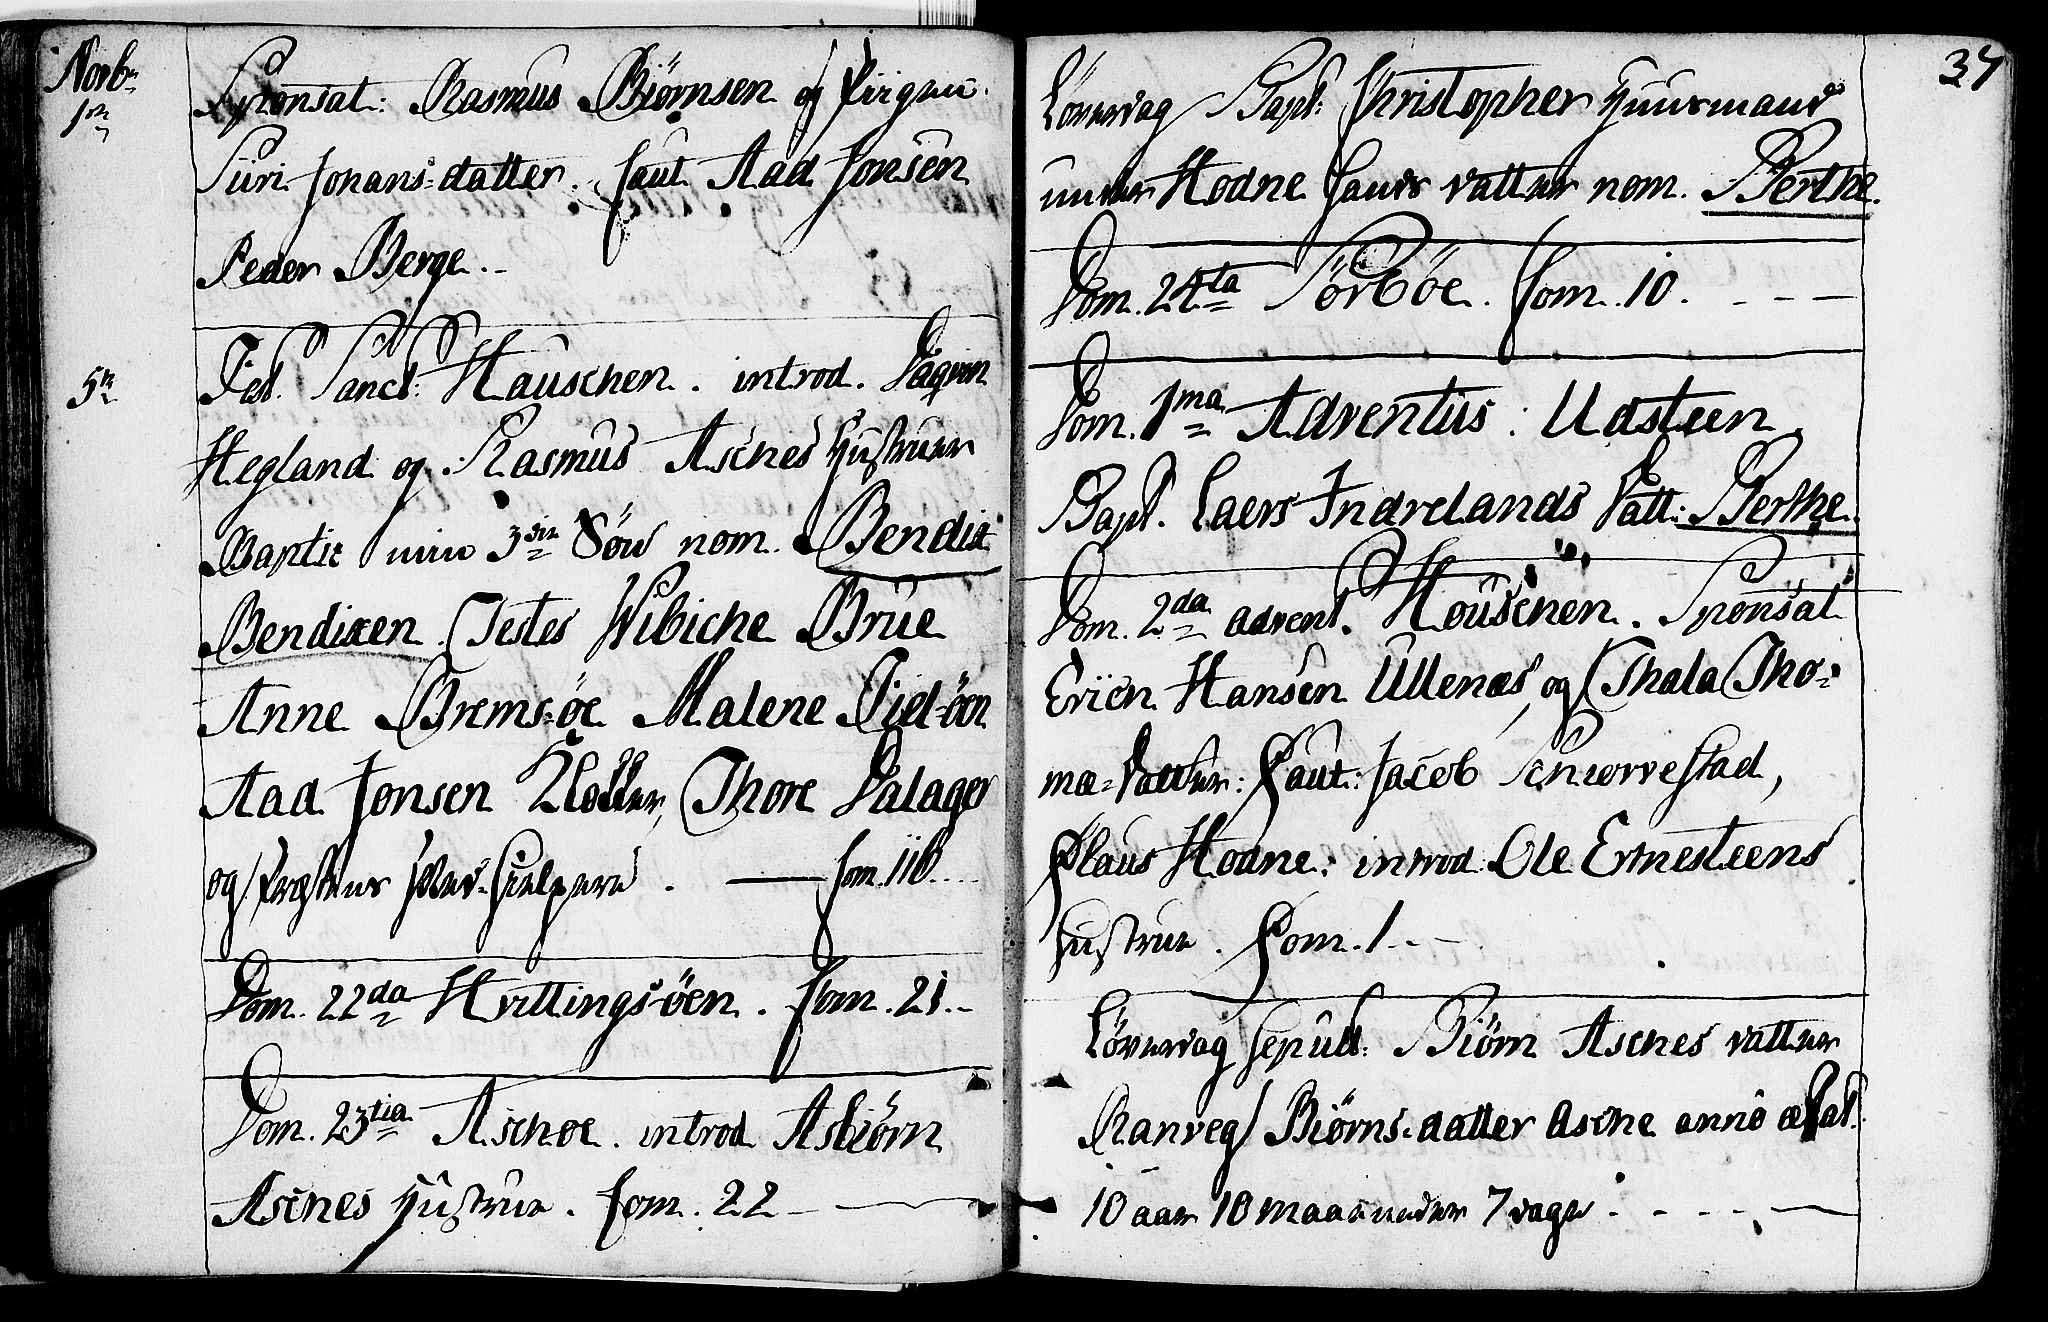 Novb:
1te
Sponsat: Rasmus Biörnsen og Piigen
Siiri Johans=datter. Caut. Aad Jonsen
Peder Berge.
5te
Fest. Sanct: Hauschen. introd. Dagven
Hegland og Rasmus Aschnes Hustruer
Baptiz min 3die Sön nom. Bendix
Bendixen. Testes Wibiche Brue
Anne Brems=öe Malene Field=öen
Aad Jonsen Kloster, Thore Dalager
og Præstens Med=Hielpere. Com. 116.
Dom. 22da Hvittings-öen. Com. 21.
Dom. 23tia Aschöe. introd Asbiörn
Aschnes Hustrue. Com. 22
37
Löverdag Bapt: Christopher Huusmands
under Hodne hands datter nom. Berthe.
Dom. 24ta Sörböe. Com. 10.
Dom. 1ma Adventus: Udsteen.
Bapt. Laers Indrelands Datt: Berthe.
Dom. 2da advent. Houschen. Sponsat
Erich Hansen Ullenæs, og Thala Tho=
mæ=Datter: Caut: Jacob Schiörrestad,
Claus Hodne: introd: Ole Ernesteens
Hustrue. Com. 1.
Löverdag sepult: Biörn Aschnes datter
Ranveg Biörns=datter Asche anno ætat.
10 aar 10 maaneder 7 dage